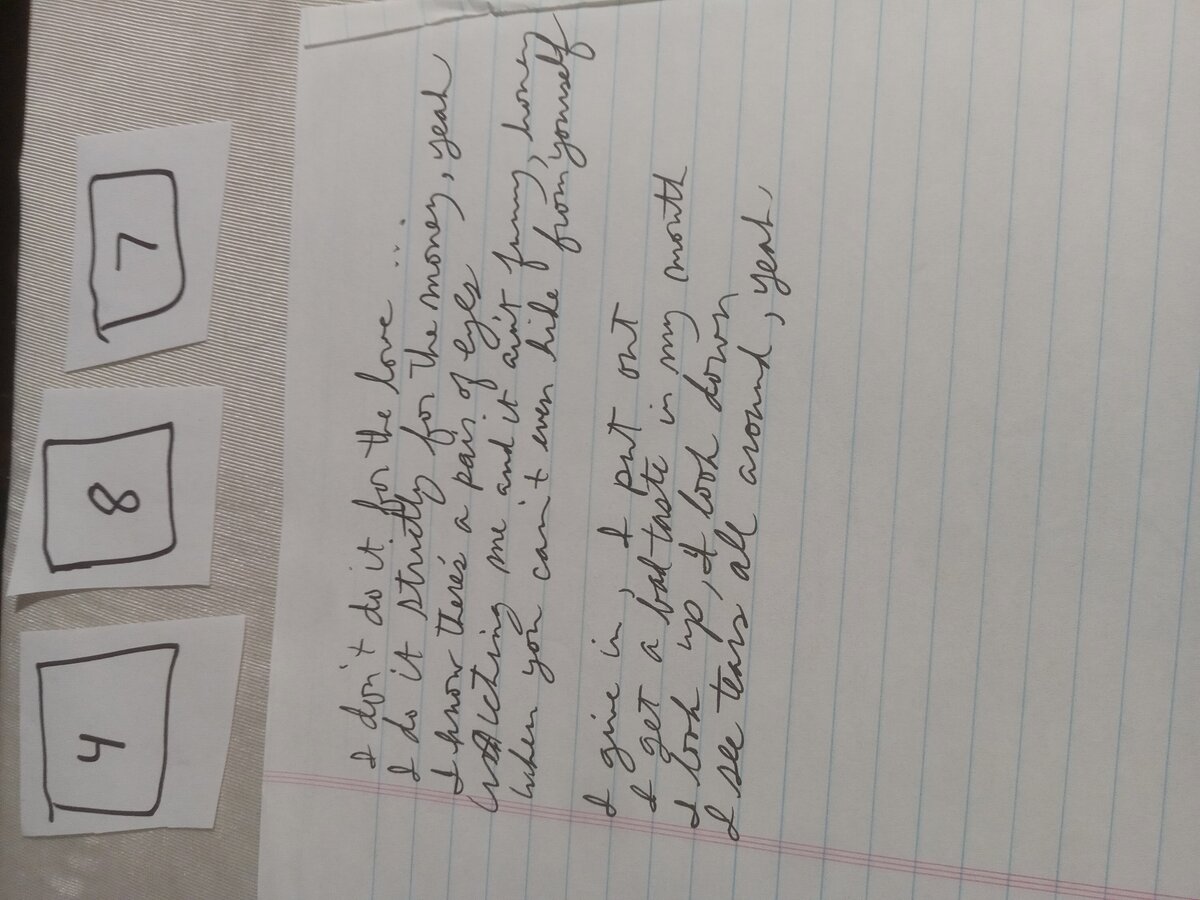 4 8 7
I don't do it for the love...
I do it strictly for the money, yeah
I know there's a pair of eyes
Watching me and it ain't funny, honey
When you can't even hide from yourself
I give in, I put out
I get a bad taste in my mouth
I look up, I look down
I see tears all around, yeah